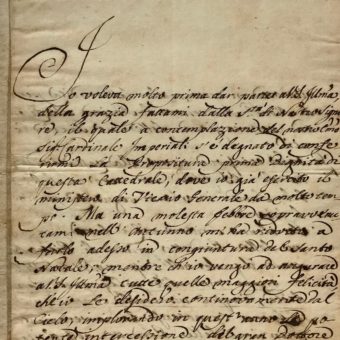 Io voleva molto prima dar parte a V.S. Illma
della grazia fattami dalla Sta. di Nostro Signo
re, il quale a contemplazione del
Sigr. Cardinale Imperiali s'è degnato di confe
rirmi la Propositura prima dignità di
questa Cattedrale, dove io già esercito il
ministero di Vicario Generale da molto tem
po. Ma una molesta febre sopravvenu
tami nell'Autunno mi ha ridotto a
farlo adesso in congiuntura del Santo
Natale, mentre ch'io vengo ad augurare
a V.S. Illma tutte quelle maggiori felicità
che io Le desidero continovamente dal
Cielo, implorando in quest'anno la po
tente intercessione del gran Dottore